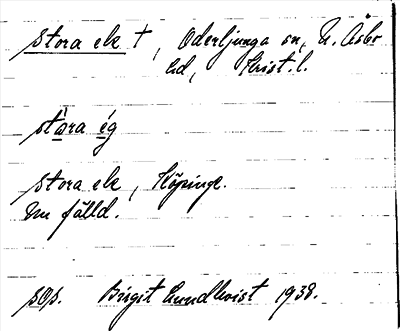 stora ek †, Oderljunga sn, N. Åsbo
hd, Krist. l.
stàra ég
stora ek, Köpinge.
Nu fälld.
Birgit Lundkvist 1938.